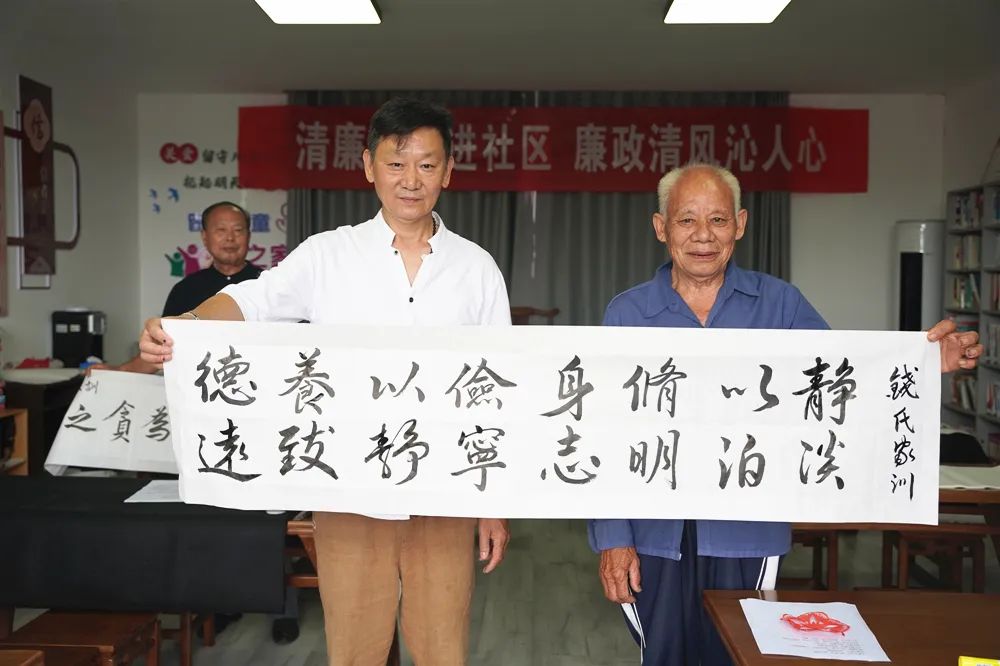 清廉 进社区 廉政清风沁人心
留守
童
之家
信
錢氏家训
静以脩身儉以養德
淡泊明志寧静致遠
為貪之